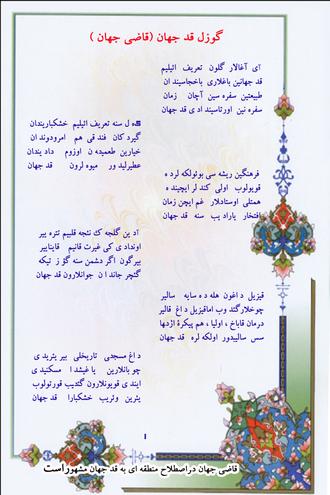 گوزل قد جهان (قاضی جهان )
ای آغالار گلون تعریف ائیلیم
قد جهانین باغلاری باخجاسیندان
طبیعتین سفره سین آچان زمان
سفره نین اورتاسیندادی قد جهان
گل سنه تعریف ائیلیم خشکباریندان
گیردکان فندقی هم امرودوندان
خیارین طعمیده ن اوزوم دادیندان
عطیرلیدور میوه لرون قد جهان
فرهنگین ریشه سی بوئولکه لرده
قویولوب اولی کندلر ایچینده
همتلی اوستادلار غم ایچن زمان
افتخار یارادیب سنه قد جهان
آدین گلجه ک نئجه قلبیم تتره ییر
اوندادی کی غیرت قانیم قاینایر
بیرگون اگر دشمن سنه گؤز تیکه
گئچر جاندان جوانلارون قد جهان
قیزیل داغون هله ده سایه سالیر
چوخلارگئدوب اماقیزیل داغ قالیر
درمان قاباخ ، اولیا ، هم پیکرۀ اژدها
سس سالیبدور اولکه لره قد جهان
داغ مسجدی تاریخلی بیر یئریدی
چوبانلارین یاغیشدا مسکنیدی
ایندی قویونلارون گئدیب قورتولوب
یئرین وئریب خشکبارا قد جهان
۱
قاضی جهان دراصطلاح منطقه ای به قد جهان مشهوراست